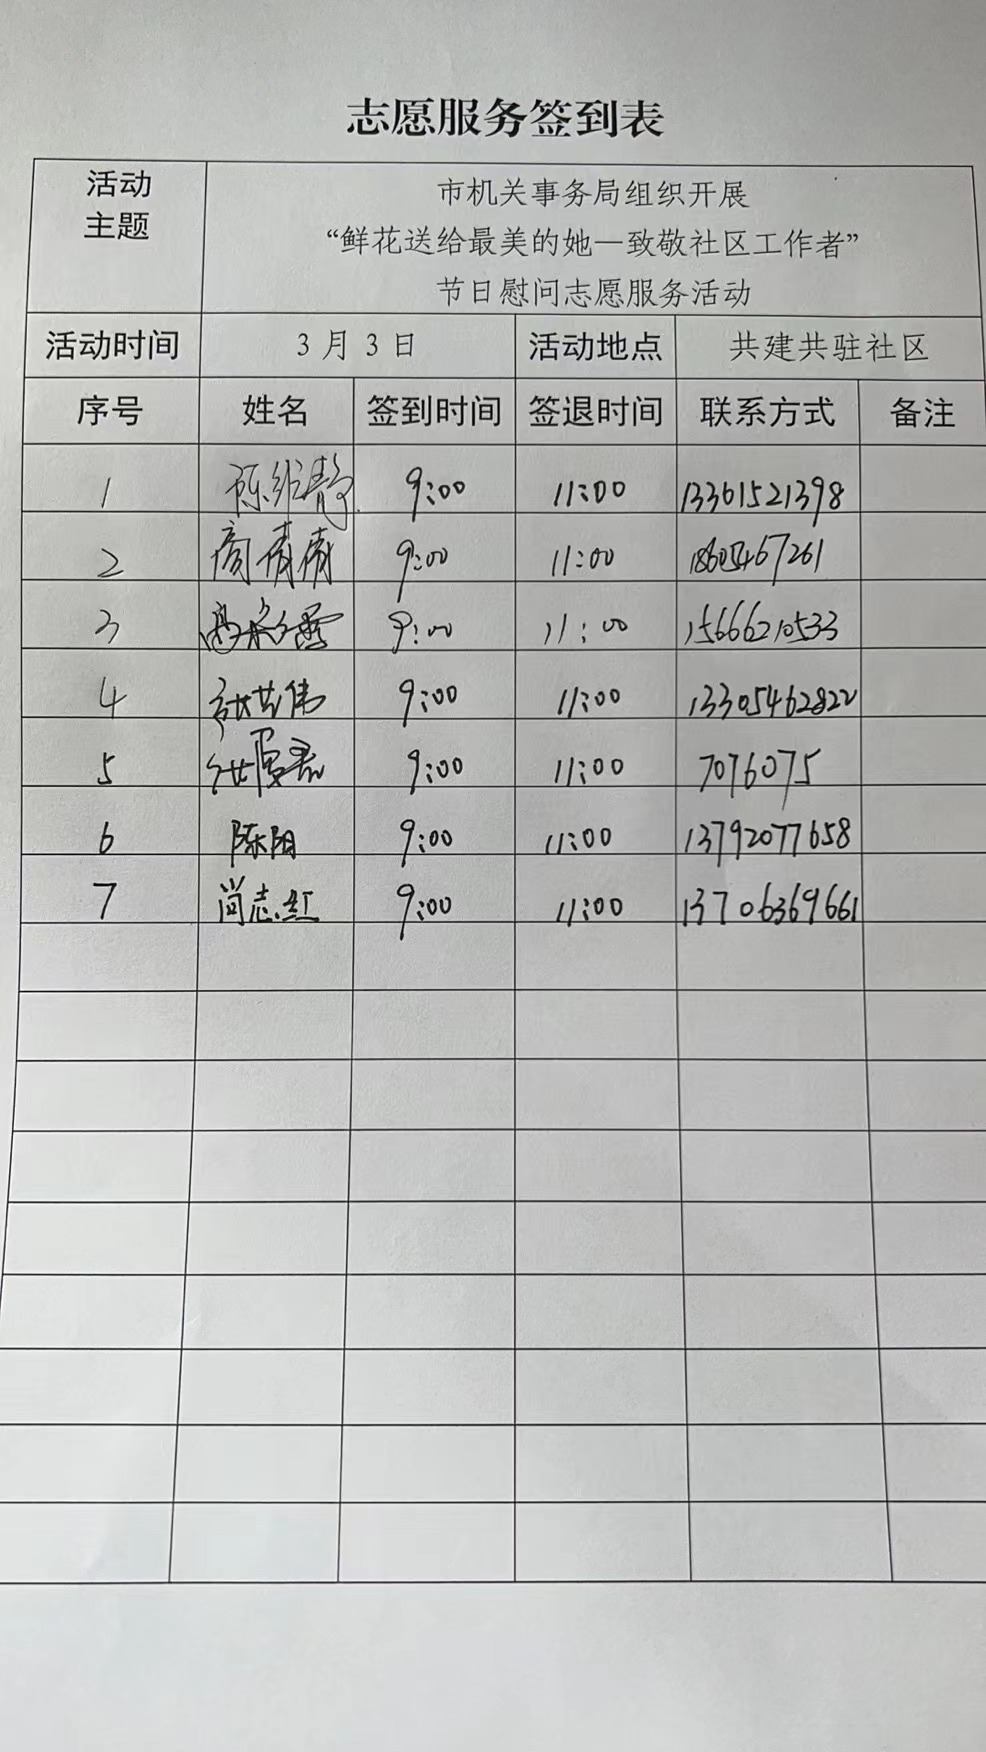 志愿服务签到表
活动
主题
市机关事务局组织开展
“鲜花送给最美的她—致敬社区工作者”
节日慰问志愿服务活动
活动时间 3月3日 活动地点 共建共驻社区
序号 姓名 签到时间 签退时间 联系方式 备注
1 陈维静 9:00 11:00 13361521398
2 商倩倩 9:00 11:00 18605467261
3 9:00 11:00 15666210533
4 9:00 11:00 13305462822
5 9:00 11:00 7076075
6 陈阳 9:00 11:00 13792077658
7 尚志红 9:00 11:00 13706369661